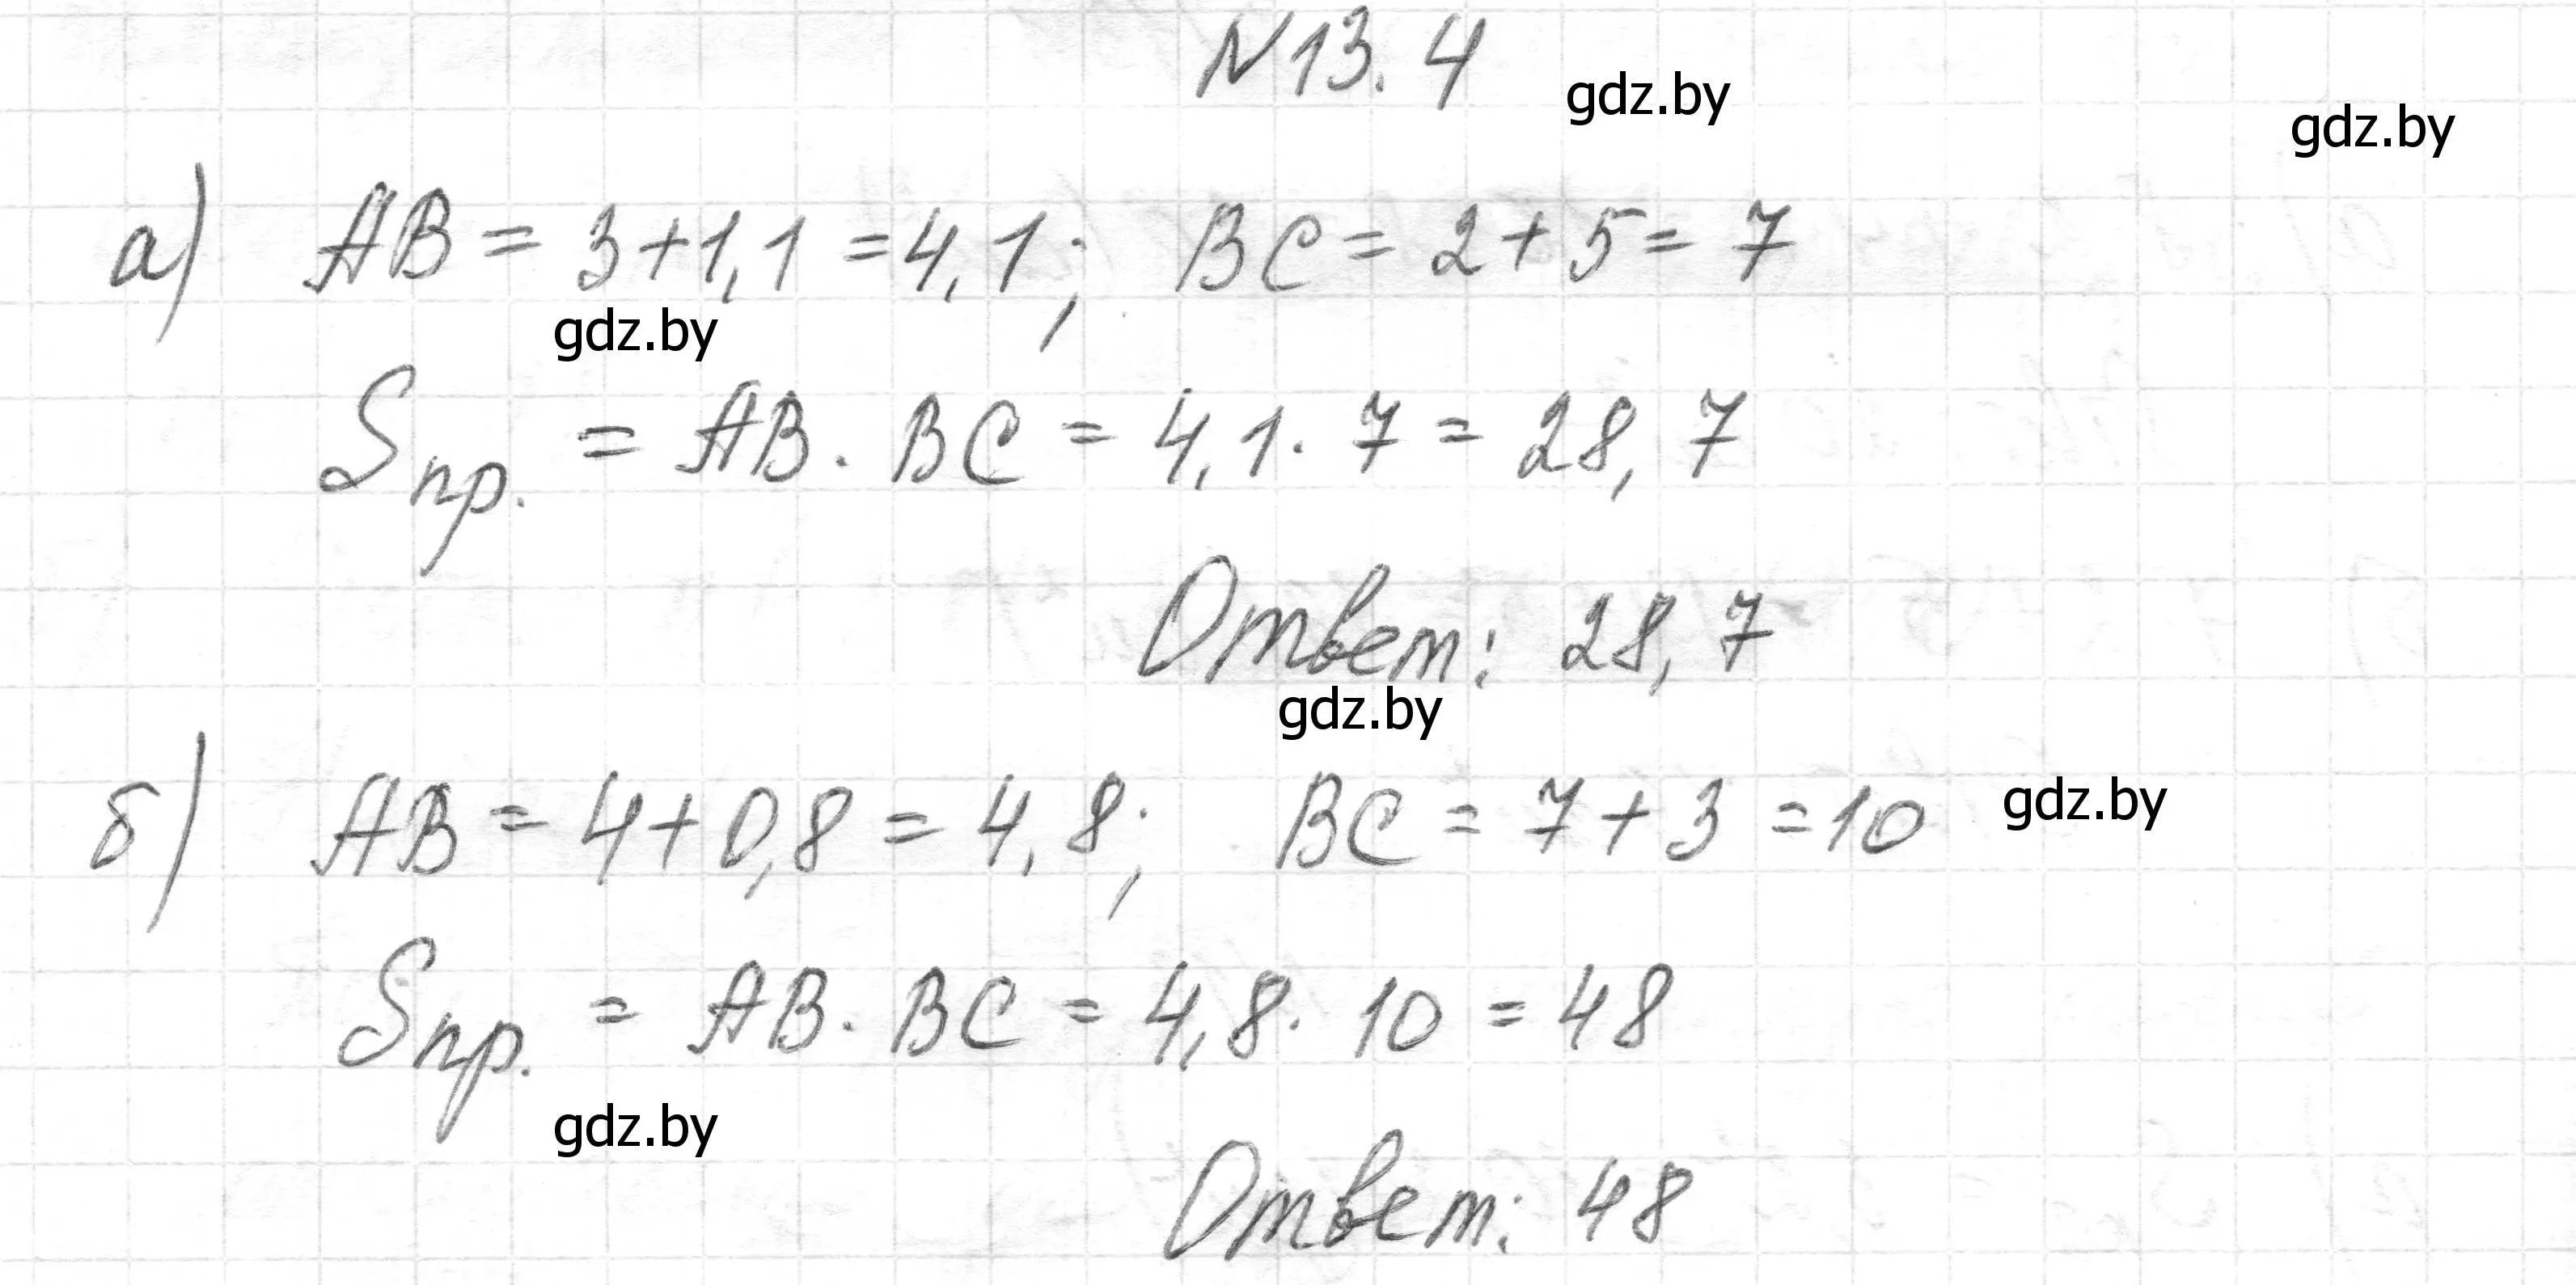 N13.4
gdz.by
gdz.by
а) AB = 3+1,1 =4,1; BC = 2+5= 7
gdz.by
Sпр. = AB · BC = 4,1 · 7 = 28,7
Ответ: 28,7
gdz.by
б) AB = 4+0,8 = 4,8; BC = 7+3 =10
gdz.by
Sпр. = AB · BC = 4,8 · 10 = 48
gdz.by
Ответ: 48